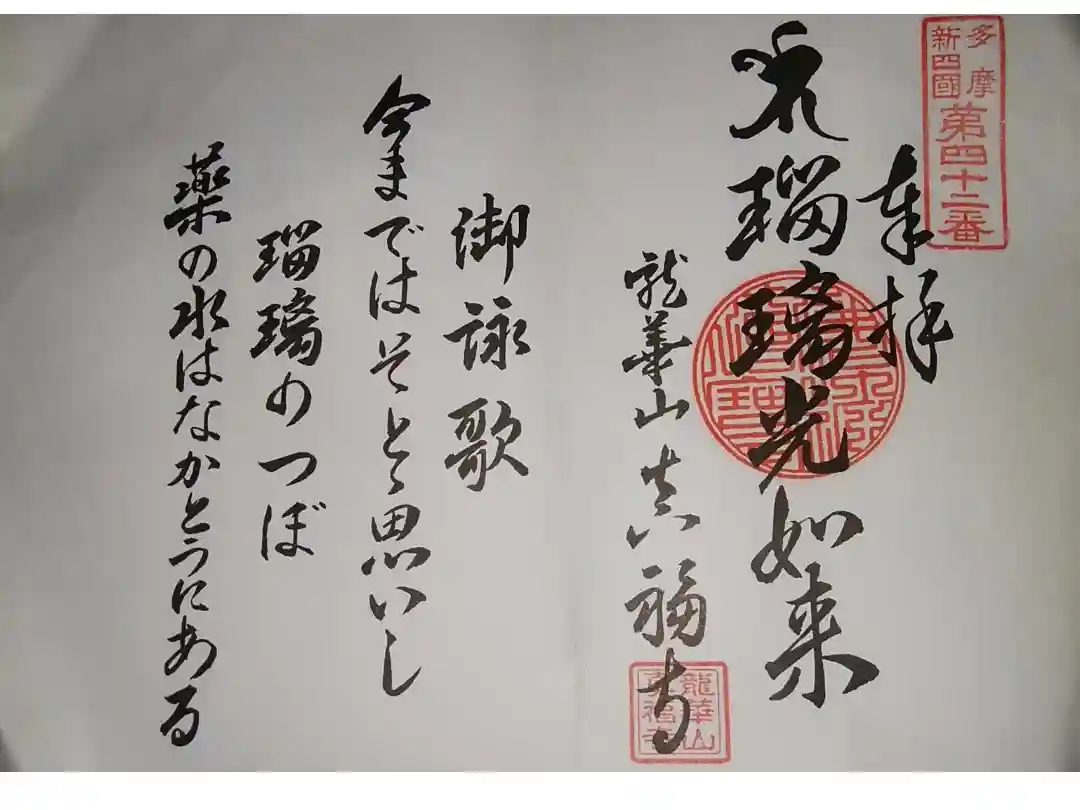 多摩
新四國
第四十二番
奉拝
瑠璃光如来
龍華山 真福寺
龍華山
真福寺
御詠歌
今まではそとゝ思いし
瑠璃のつぼ
薬の水はなかとうにある